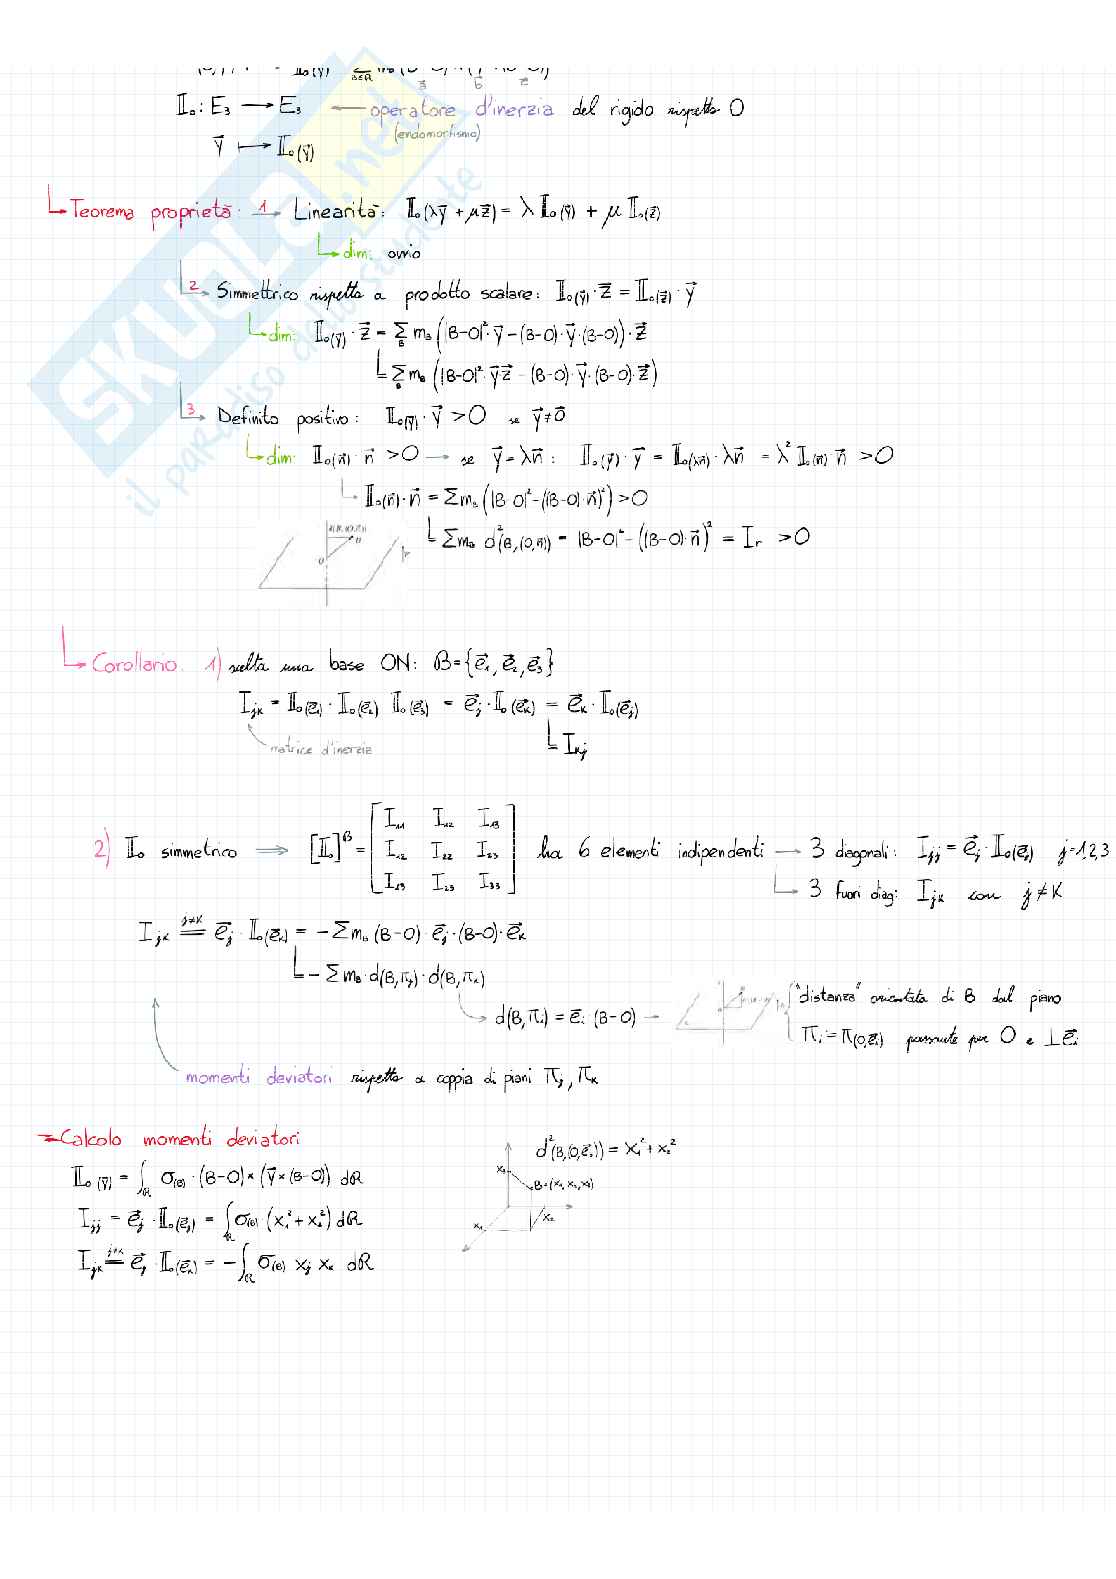 𝕀o: E₃ → E₃ ← operatore d'inerzia del rigido rispetto O
(endomorfismo)
y⃗ ↦ 𝕀o(y⃗)
Teorema proprietà: 1 → Linearità: 𝕀o(λy⃗ + μz⃗) = λ 𝕀o(y⃗) + μ 𝕀o(z⃗)
dim: ovvio
2 → Simmetrico rispetto a prodotto scalare: 𝕀o(y⃗) · z⃗ = 𝕀o(z⃗) · y⃗
dim: 𝕀o(y⃗) · z⃗ = Σ_B m_B (|B-O|² · y⃗ - (B-O) · y⃗ · (B-O)) · z⃗
= Σ_B m_B (|B-O|² · y⃗ z⃗ - (B-O) · y⃗ · (B-O) · z⃗)
3 → Definito positivo: 𝕀o(y⃗) · y⃗ > 0 se y⃗ ≠ 0⃗
dim: 𝕀o(n⃗) · n⃗ > 0 → se y⃗ = λn⃗ : 𝕀o(y⃗) · y⃗ = 𝕀o(λn⃗) · λn⃗ = λ² 𝕀o(n⃗) · n⃗ > 0
𝕀o(n⃗) · n⃗ = Σ m_B (|B-O|² - ((B-O) · n⃗)²) > 0
Σ m_B d²(B, (O, n⃗)) = |B-O|² - ((B-O) · n⃗)² = I_r > 0
Corollario: 1) scelta una base ON: B = {e⃗₁, e⃗₂, e⃗₃}
I_jk = 𝕀o(e⃗₁) · 𝕀o(e⃗₂) 𝕀o(e⃗₃) = e⃗_j · 𝕀o(e⃗_k) = e⃗_k · 𝕀o(e⃗_j)
matrice d'inerzia
= I_kj
2) 𝕀o simmetrico ⇒ [𝕀o]^B = [I₁₁ I₁₂ I₁₃
I₁₂ I₂₂ I₂₃
I₁₃ I₂₃ I₃₃] ha 6 elementi indipendenti → 3 diagonali: I_jj = e⃗_j · 𝕀o(e⃗_j) j=1,2,3
→ 3 fuori diag: I_jk con j ≠ k
I_jk =^{j≠k} e⃗_j · 𝕀o(e⃗_k) = - Σ m_B (B-O) · e⃗_j · (B-O) · e⃗_k
= - Σ m_B · d(B, π_j) · d(B, π_k)
→ d(B, π_i) = e⃗_i · (B-O) → "distanza" orientata di B dal piano
π_i = π(O, e⃗_i) passante per O e ⊥ e⃗_i
momenti deviatori rispetto a coppia di piani π_j, π_k
Calcolo momenti deviatori
𝕀o(y⃗) = ∫_R σ(B) · (B-O) × (y⃗ × (B-O)) dR
I_jj = e⃗_j · 𝕀o(e⃗_j) = ∫_R σ(B) (x₁² + x₂²) dR
I_jk =^{j≠k} e⃗_j · 𝕀o(e⃗_k) = - ∫_R σ(B) x_j x_k dR
d²(B, (O, e⃗₃)) = x₁² + x₂²
x₃
B = (x₁, x₂, x₃)
x₂
x₁
SKUOLA.net
il paradiso dello studente